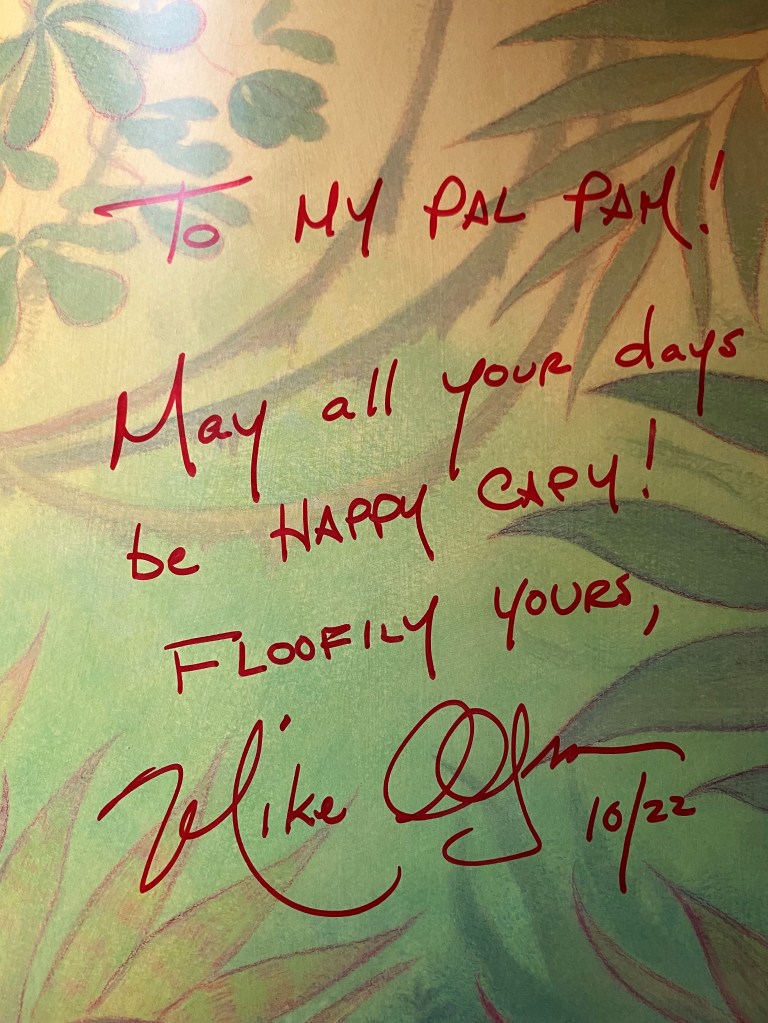 To MY PAL PAM!
May all your days
be HAPPY CAPY!
FLOOFILY YOURS,
Mike Olson
10/22